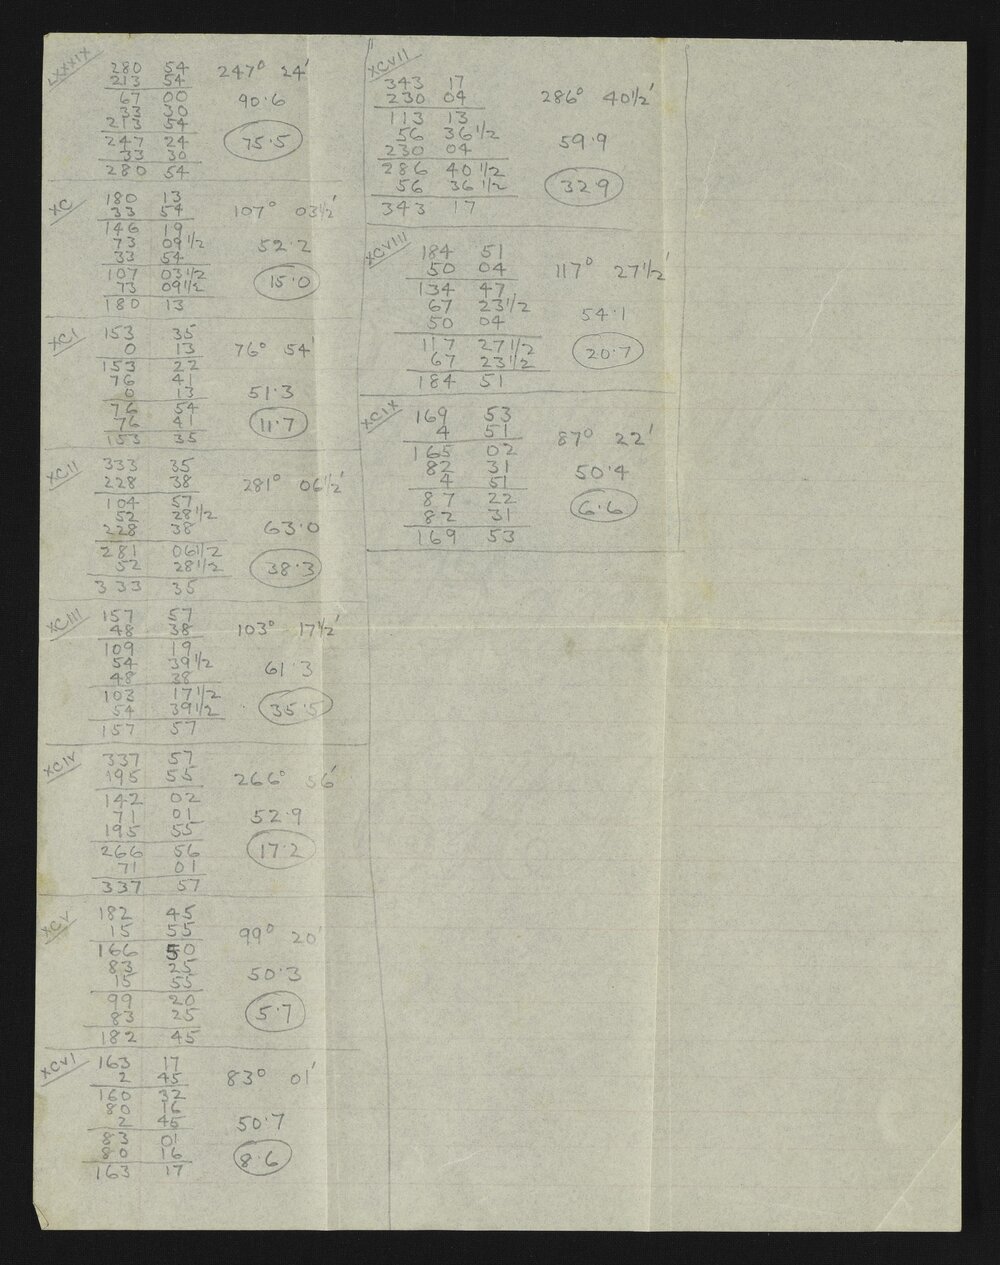 LXXXIX
280 54 247° 24'
213 54
67 00 90·6
33 30
213 54
247 24 75·5
33 30
280 54
XC
180 13 107° 03½'
33 54
146 19
73 09½ 52·2
33 54
107 03½ 15·0
73 09½
180 13
XCI
153 35
0 13 76° 54'
153 22
76 41
0 13 51·3
76 54
76 41 11·7
153 35
XCII
333 35
228 38 281° 06½'
104 57
52 28½
228 38 63·0
281 06½
52 28½ 38·3
333 35
XCIII
157 57
48 38 103° 17½'
109 19
54 39½ 61·3
48 38
103 17½
54 39½ 35·5
157 57
XCIV
337 57
195 55 266° 56'
142 02
71 01 52·9
195 55
266 56 17·2
71 01
337 57
XCV
182 45
15 55 99° 20'
166 50
83 25 50·3
15 55
99 20
83 25 5·7
182 45
XCVI
163 17
2 45 83° 01'
160 32
80 16
2 45 50·7
83 01
80 16 8·6
163 17
XCVII
343 17
230 04 286° 40½'
113 13
56 36½ 59·9
230 04
286 40½
56 36½ 32·9
343 17
XCVIII
184 51
50 04 117° 27½'
134 47
67 23½
50 04 54·1
117 27½
67 23½ 20·7
184 51
XCIX
169 53
4 51 87° 22'
165 02
82 31 50·4
4 51
87 22
82 31 6·6
169 53